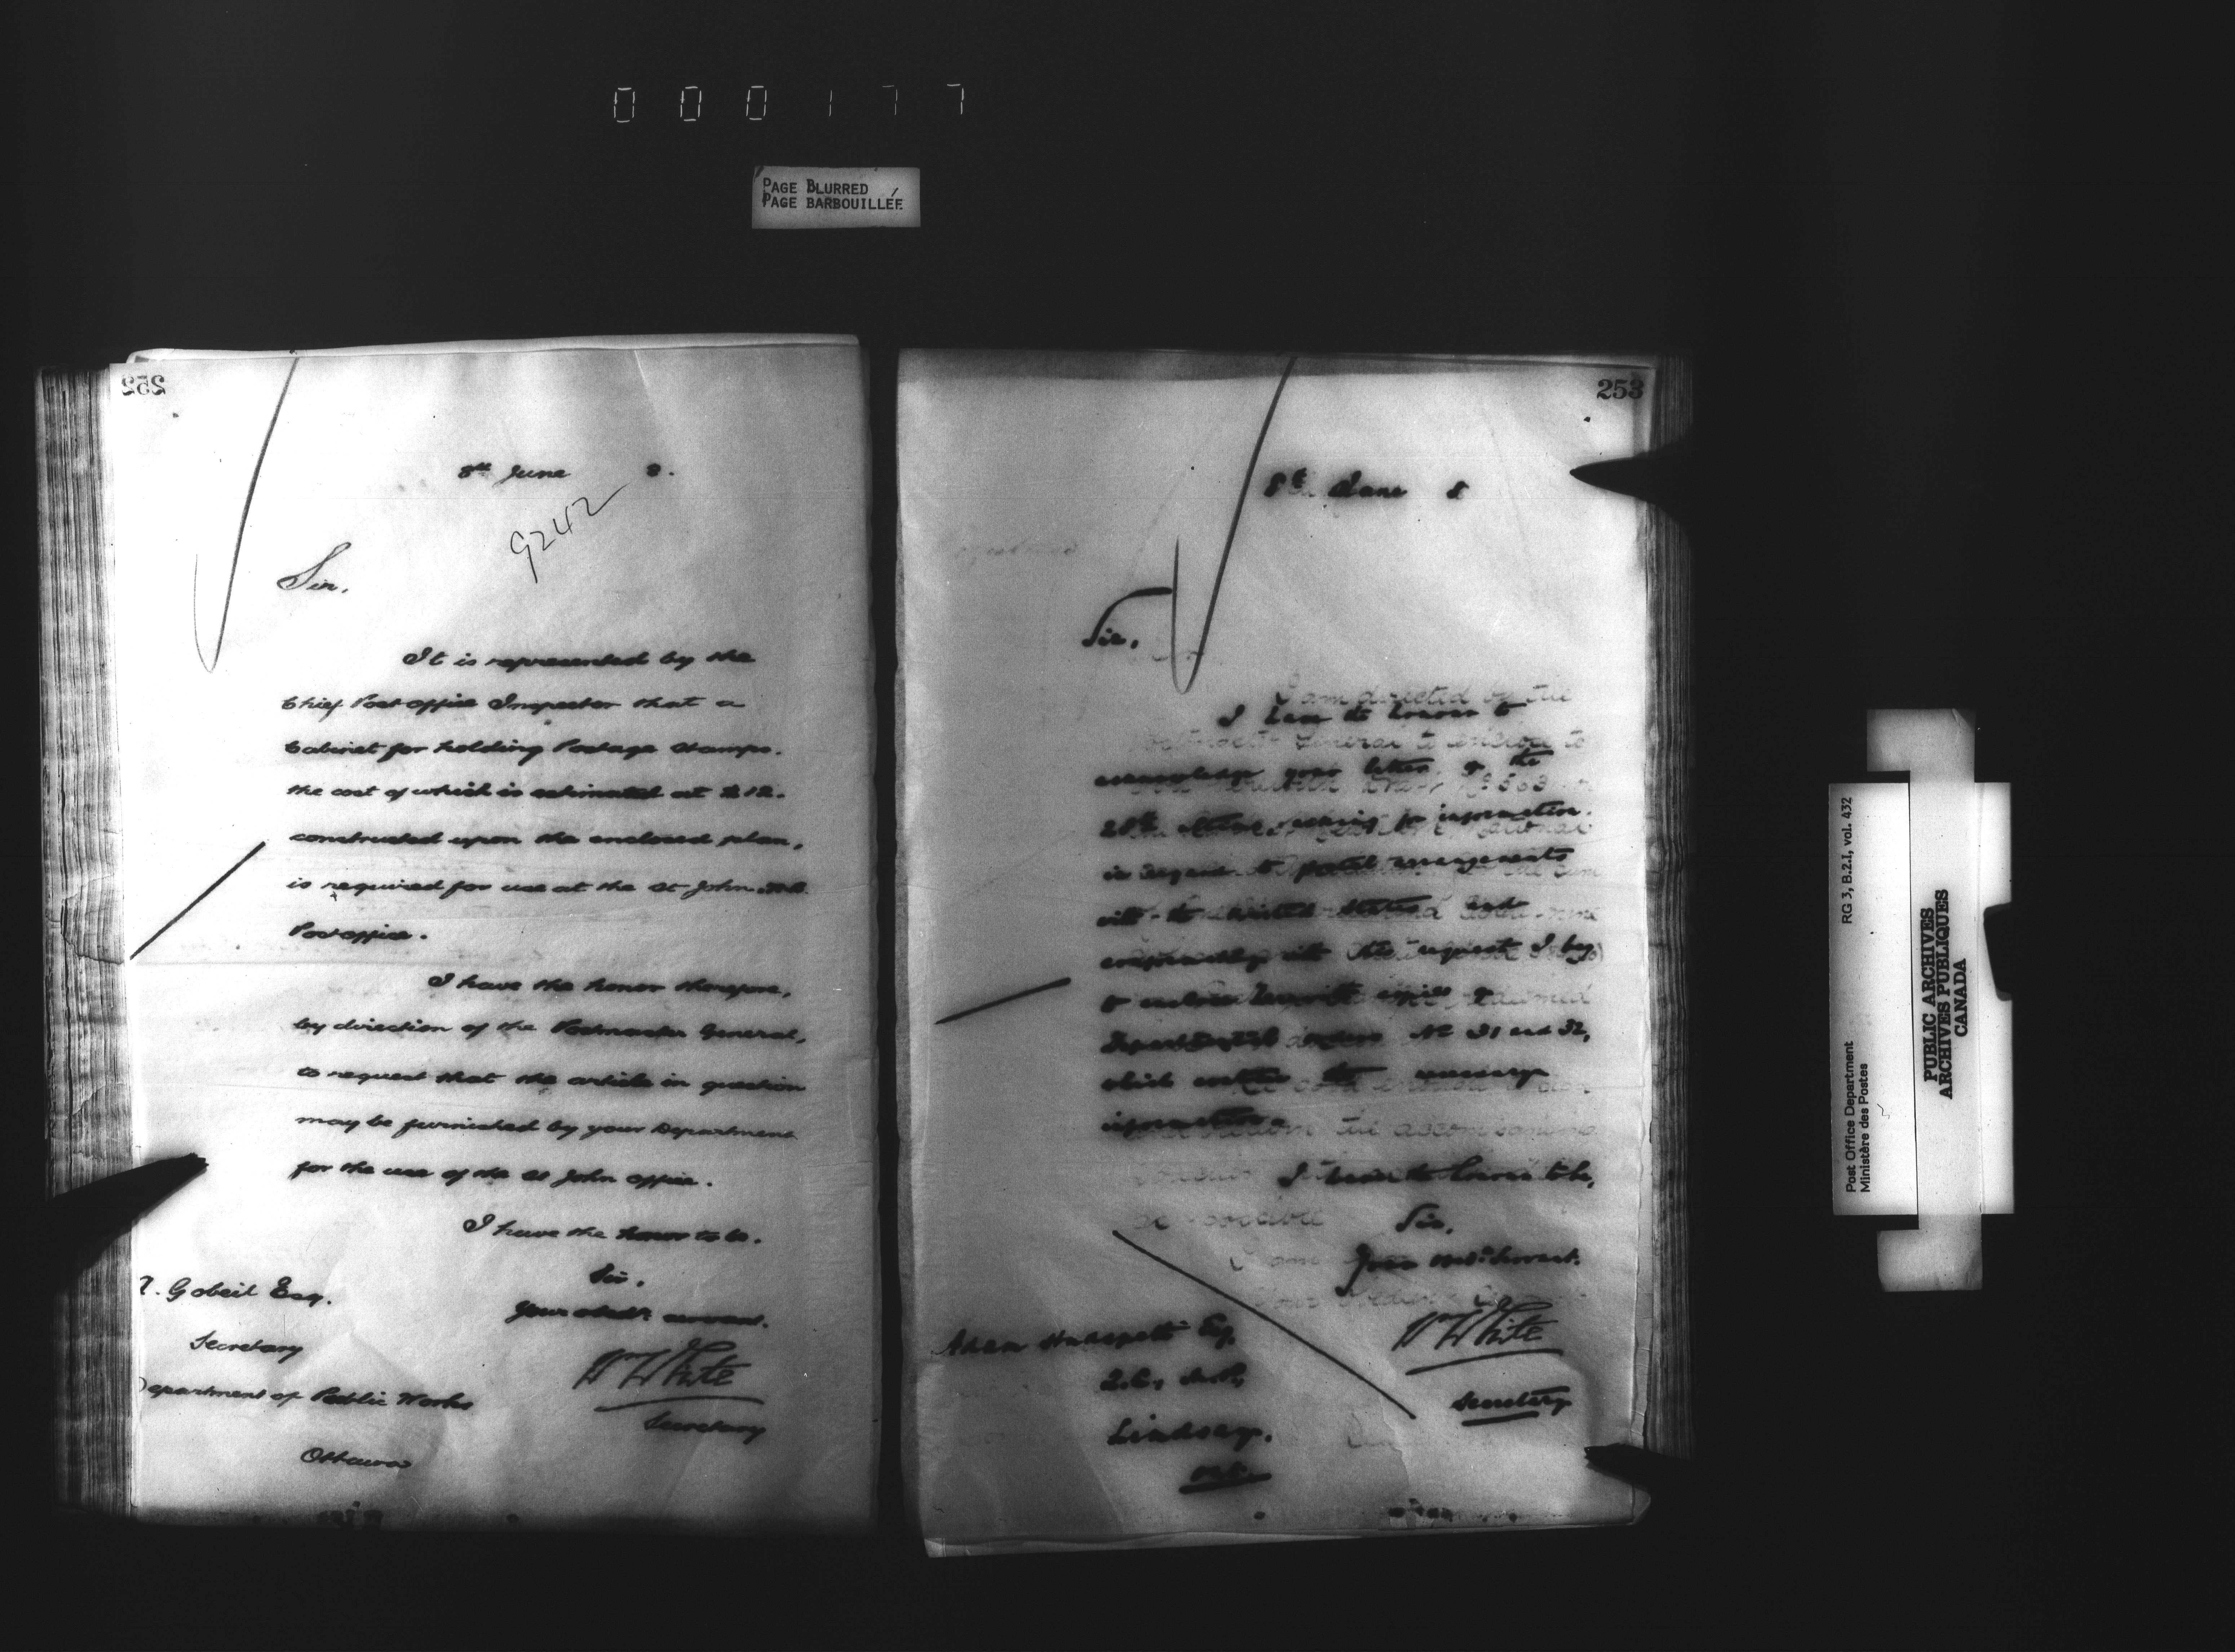 000177
PAGE BLURRED
PAGE BARBOUILLÉE
252
8th June 8.
9242
Sir,
It is represented by the
Chief Post office Inspector that a
Cabinet for holding Postage Stamps,
the cost of which is estimated at $12.
constructed upon the enclosed plan,
is required for use at the St John N.B.
Post office.
I have the honor therefore,
by direction of the Postmaster General,
to request that the article in question
may be furnished by your Department
for the use of the St John office.
I have the honor to be,
Sir,
Your obedt. servant.
W White
Secretary
A. Gobeil Esq.
Secretary
Department of Public Works
Ottawa
253
8th June 8
Sir,
I have the honor to
acknowledge your letter of the
28th asking for information
in regard to postal arrangements
with the United States and
conformably with the request I beg
to enclose herewith copies of
Departmental orders No 31 and 32,
which contain the necessary
information.
I have the honor to be,
Sir,
Your obdt. Servant.
W White
Secretary
Adam Hudspeth Esq,
Q.C., M.P.,
Lindsay,
Ont.
Post Office Department RG 3, B.2.1, vol. 432
Ministère des Postes
PUBLIC ARCHIVES
ARCHIVES PUBLIQUES
CANADA